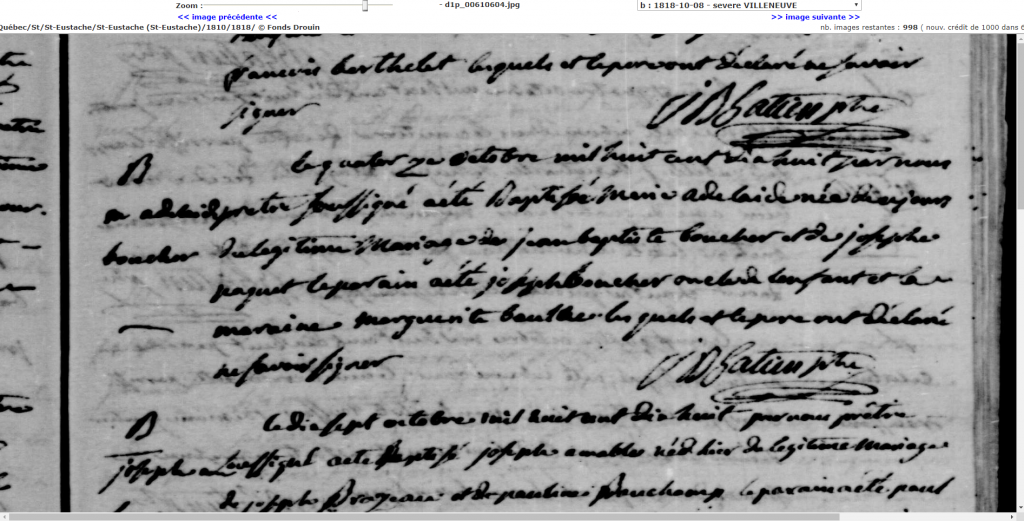 Zoom :
- d1p_00610604.jpg
b : 1818-10-08 - severe VILLENEUVE
<< image précédente <<
>> image suivante >>
Québec/St/St-Eustache/St-Eustache (St-Eustache)/1810/1818/ © Fonds Drouin
nb. images restantes : 998 ( nouv. crédit de 1000 dans 6
francois berthelet lesquels et le pere ont déclaré ne savoir
signer
J B Gatien ptre
B
le quatorze octobre mil huit cent dix huit par nous
m adelaid
prêtre soussigné a été Baptisée marie adelaide née dix jours
boucher
du legitime Mariage de jean baptiste boucher et de josephe
paquet le parain a été joseph Boucher oncle de l'enfant et la
maraine marguerite lesquels et le pere ont déclaré
ne savoir signer
J B Gatien ptre
B
le dix sept octobre mil huit cent dix huit par nous prêtre
joseph am
soussigné a été Baptisé joseph amable né d'hier du legitime Mariage
de joseph Brazeau et de pauline Beauchamp le parain a été paul